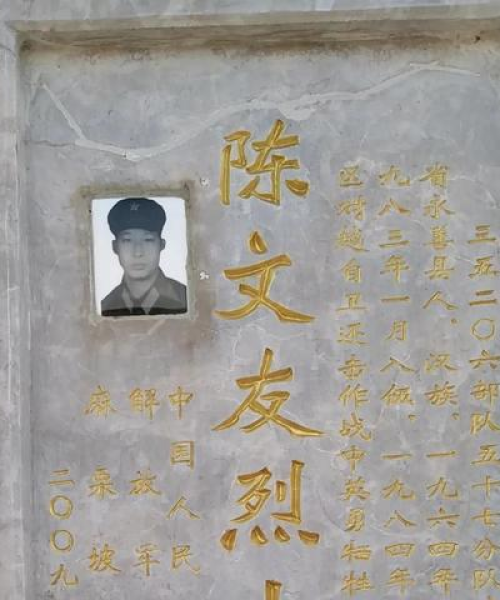 三五二〇六部队五十七分队
省永善县人、汉族、一九六四年
九八三年一月入伍、一九八四年
区对越自卫还击作战中英勇牺牲
陈文友烈
中国人民
解放军
麻栗坡
二〇〇九